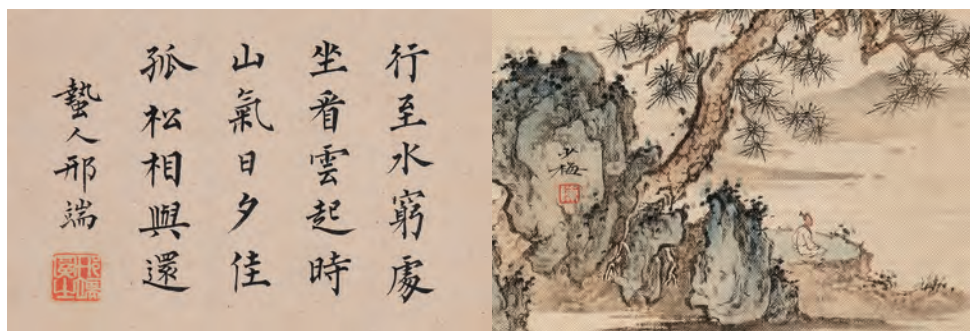 行至水窮處
坐看雲起時
山氣日夕佳
孤松相與還
蟄人邢端
少梅
陳